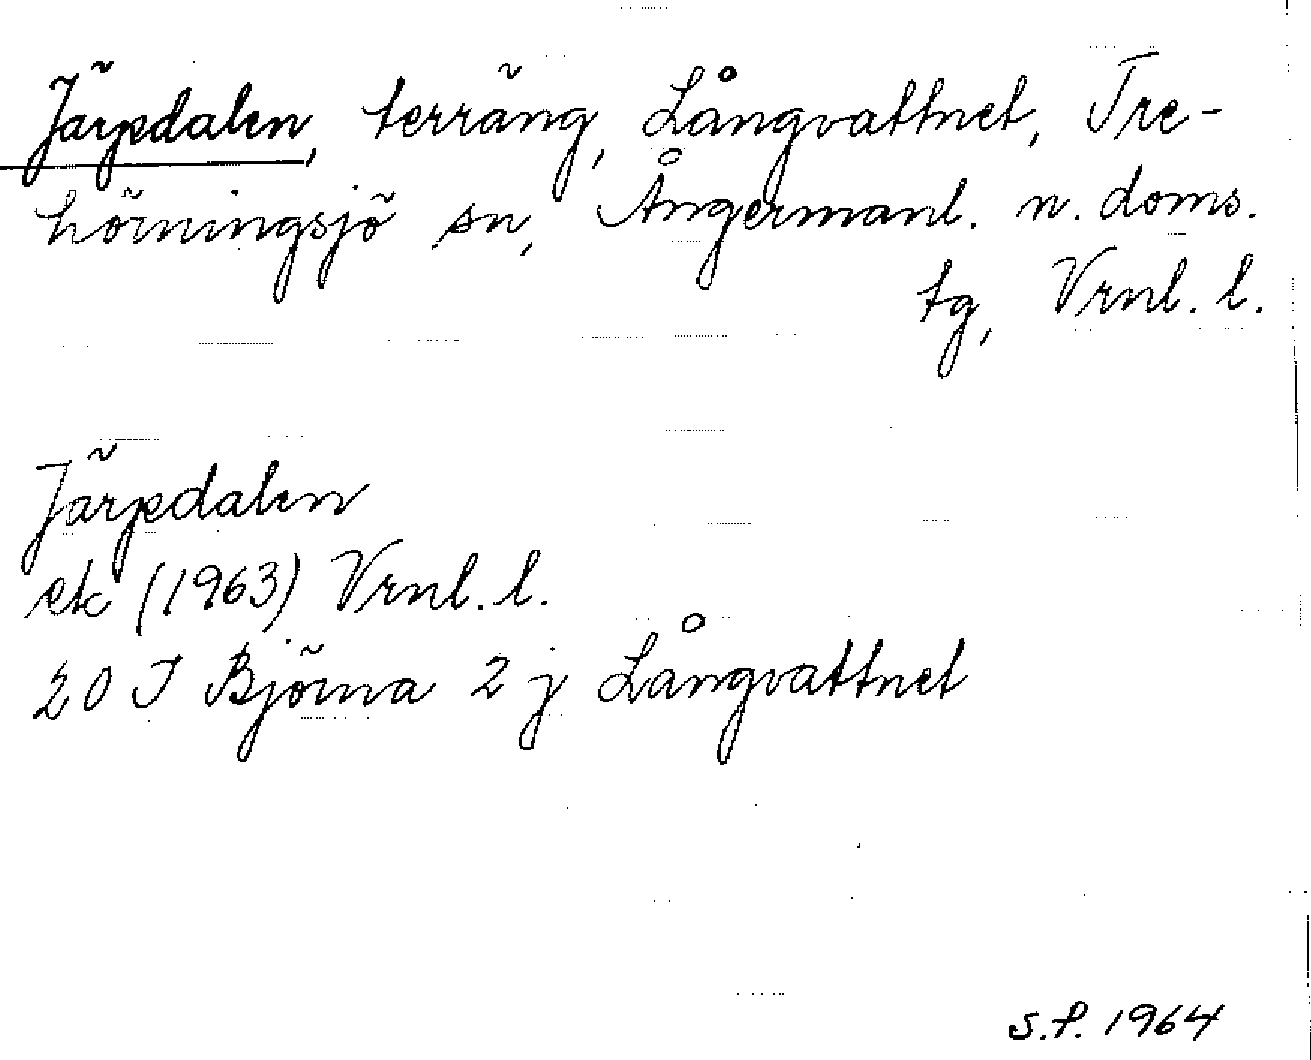 Järpdalen, terräng, Långvattnet, Tre-
hörningsjö sn, Ångermanl. n. doms.
tg, Vrnl. l.
Järpdalen
ek (1963) Vrnl. l.
20 J Björna 2 j Långvattnet
S.P. 1964